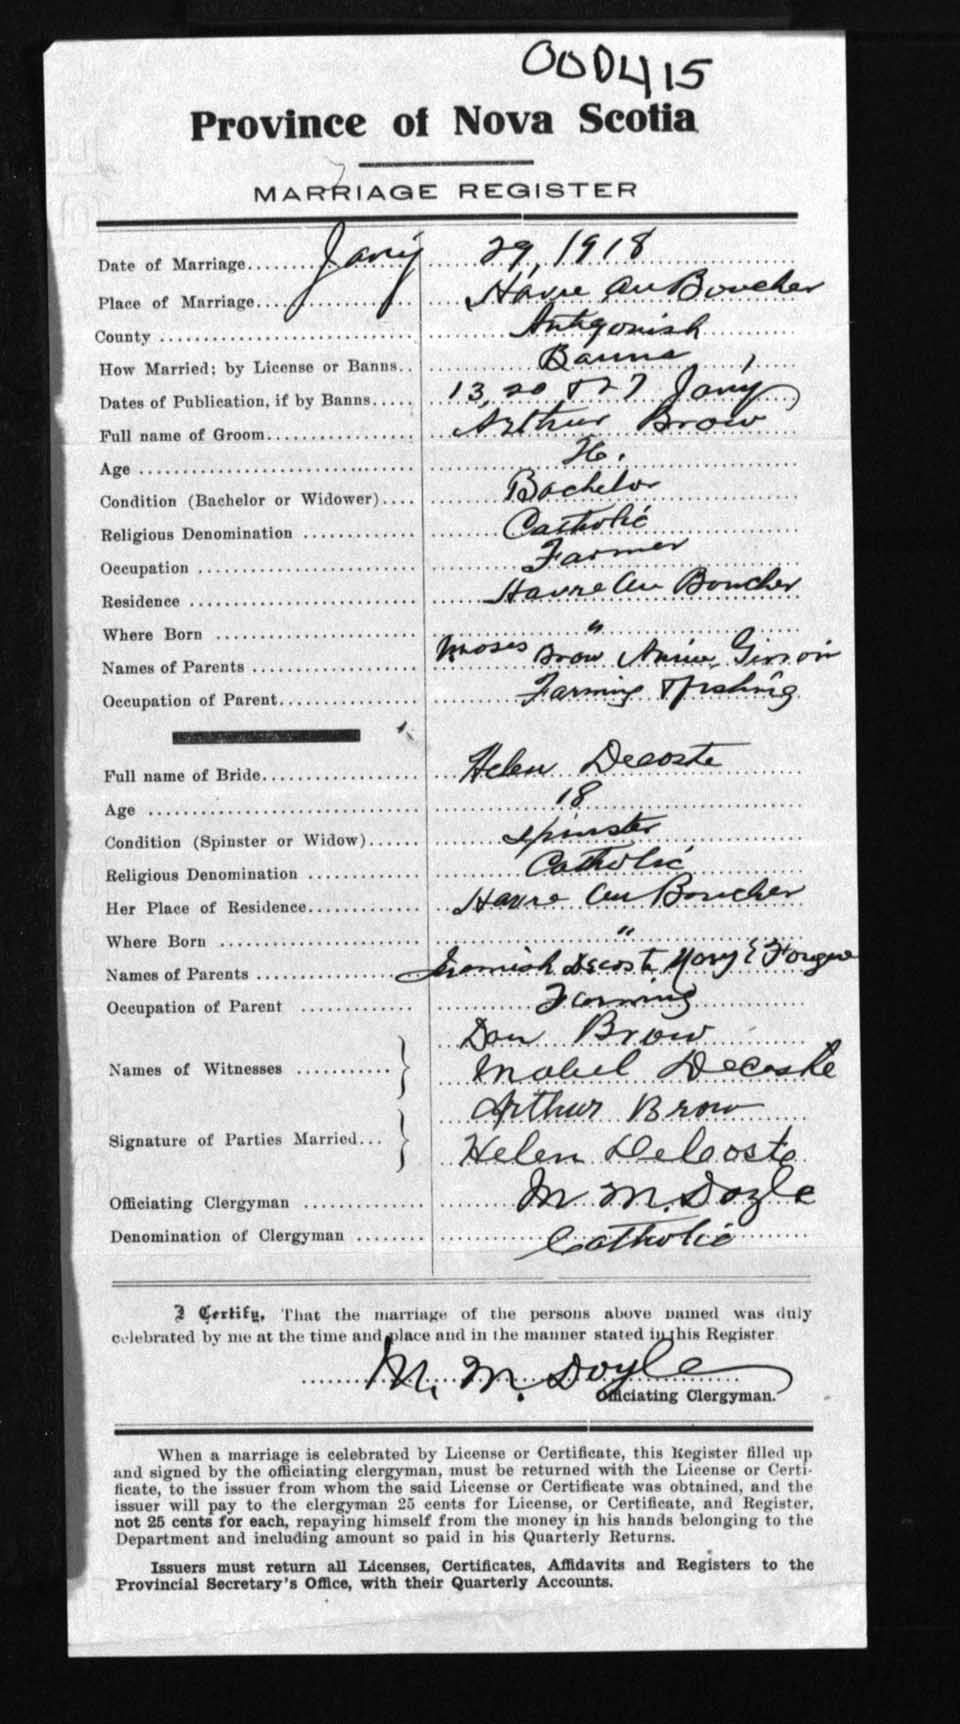 000415
Province of Nova Scotia
MARRIAGE REGISTER
Date of Marriage Jan'y 29, 1918
Place of Marriage Havre Au Boucher
County Antigonish
How Married; by License or Banns Banns
Dates of Publication, if by Banns 13, 20 & 27 Jan'y
Full name of Groom Arthur Brow
Age
Condition (Bachelor or Widower) Bachelor
Religious Denomination Catholic
Occupation Farmer
Residence Havre Au Boucher
Where Born "
Names of Parents Moses Brow Annie
Occupation of Parent Farming & fishing
Full name of Bride Helen Decoste
Age 18
Condition (Spinster or Widow) Spinster
Religious Denomination Catholic
Her Place of Residence Havre Au Boucher
Where Born "
Names of Parents Jeremiah Decoste Mary E
Occupation of Parent Farming
Dan Brow
Names of Witnesses Mabel Decoste
Arthur Brow
Signature of Parties Married Helen DeCoste
Officiating Clergyman M. M. Doyle
Denomination of Clergyman Catholic
I Certify, That the marriage of the persons above named was duly
celebrated by me at the time and place and in the manner stated in this Register
M. M. Doyle
Officiating Clergyman.
When a marriage is celebrated by License or Certificate, this Register filled up
and signed by the officiating clergyman, must be returned with the License or Certi-
ficate, to the issuer from whom the said License or Certificate was obtained, and the
issuer will pay to the clergyman 25 cents for License, or Certificate, and Register,
not 25 cents for each, repaying himself from the money in his hands belonging to the
Department and including amount so paid in his Quarterly Returns.
Issuers must return all Licenses, Certificates, Affidavits and Registers to the
Provincial Secretary's Office, with their Quarterly Accounts.